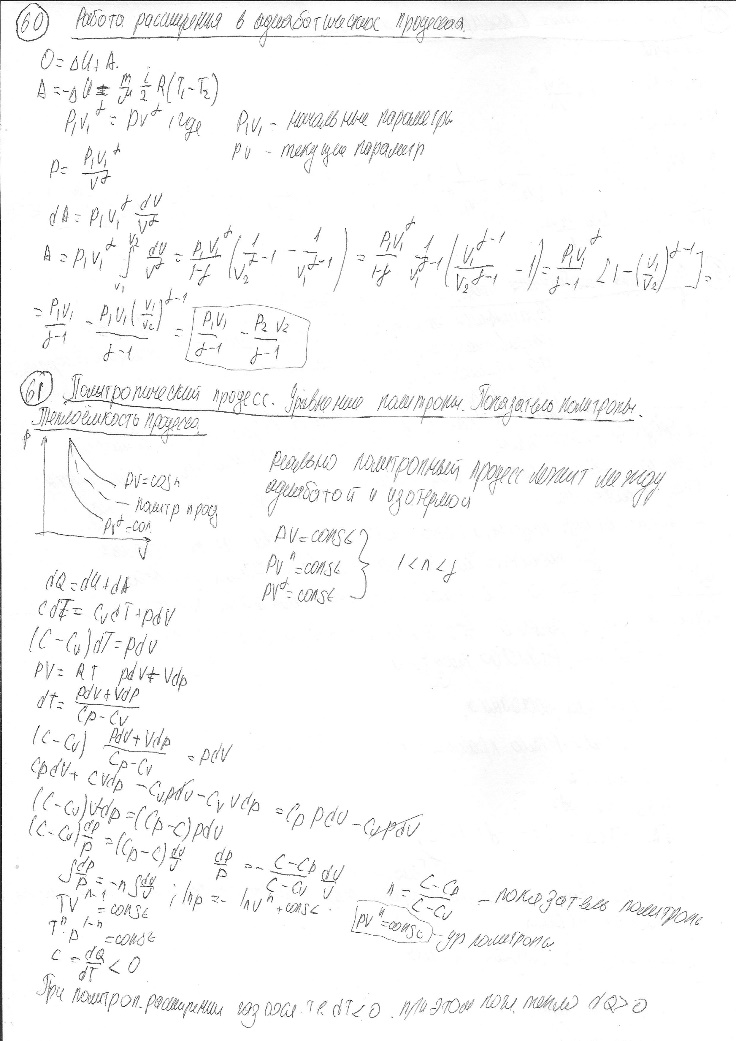 60 Работа расширения в адиабатических процессах.
O = ΔU + A.
A = -ΔU = m/μ i/2 R(T₁ - T₂)
P₁V₁^γ = PV^γ, где P₁V₁ - начальные параметры
PV - текущие параметр
P = P₁V₁^γ / V^γ
dA = P₁V₁^γ dV/V^γ
A = P₁V₁^γ ∫_{V₁}^{V₂} dV/V^γ = P₁V₁^γ/(1-γ) (1/V₂^{γ-1} - 1/V₁^{γ-1}) = P₁V₁^γ/(1-γ) 1/V₁^{γ-1} (V₁^{γ-1}/V₂^{γ-1} - 1) = P₁V₁^γ/(γ-1) [1 - (V₁/V₂)^{γ-1}] =
= P₁V₁/(γ-1) - P₁V₁(V₁/V₂)^{γ-1}/(γ-1) = P₁V₁/(γ-1) - P₂V₂/(γ-1)
61 Политропический процесс. Уравнение политропы. Показатель политропы.
Теплоёмкость процесса.
P
PV = const
политр проц
PV^γ = con
V
Реально политропный процесс лежит между
адиабатой и изотермой
PV = const
PV^n = const
PV^γ = const
1 < n < γ
dQ = dU + dA
CdT = CvdT + pdV
(C - Cv)dT = pdV
PV = RT pdV + Vdp
dT = (pdV + Vdp)/(Cp - Cv)
(C - Cv) (pdV + Vdp)/(Cp - Cv) = pdV
CpdV + CVdp - CvpdV - CvVdp = CpPdV - CvpdV
(C - Cv)Vdp = (Cp - C)pdV
(C - Cv)dp/p = (Cp - C)dV/V dp/p = - (C - Cp)/(C - Cv) dV/V
∫dp/p = -n∫dV/V ; lnp = - lnV^n + const. n = (C - Cp)/(C - Cv) - показатель политропы
TV^{n-1} = const PV^n = const - ур политропы.
T^n p^{1-n} = const
C = dQ/dT < 0
При политроп. расширении газ т.к. dT < 0. при этом тепло dQ > 0